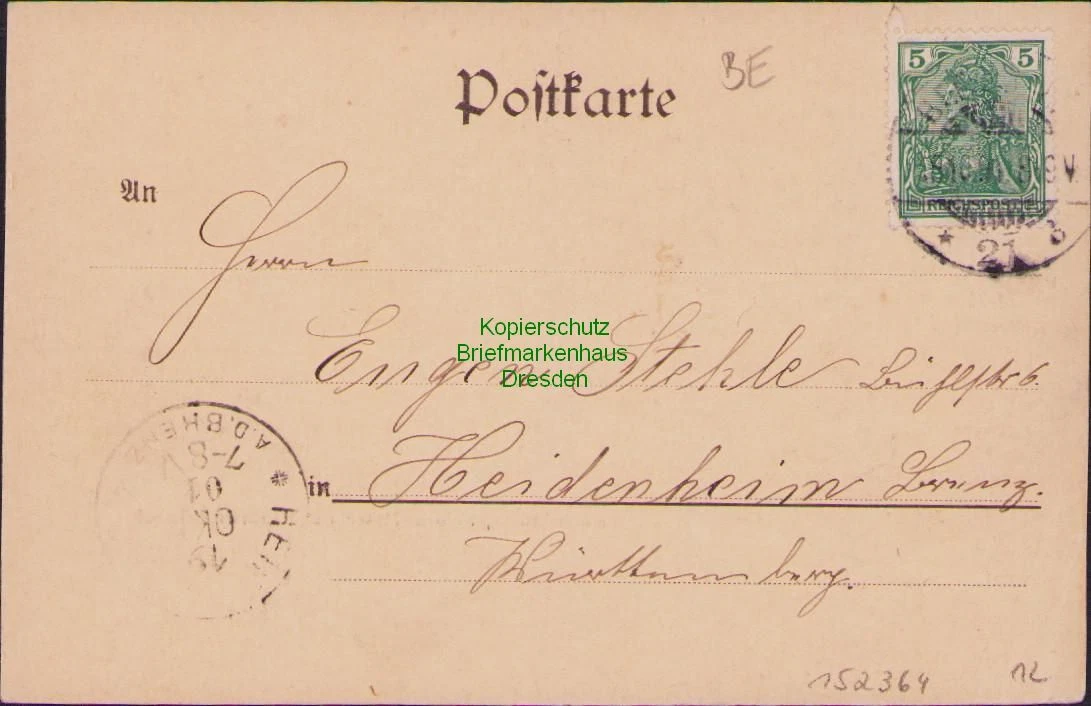 Postkarte
BE
5 5
REICHSPOST
21 b
An
Herrn
Kopierschutz
Briefmarkenhaus
Dresden
Eugen Stehle Bühlstr 6.
in Heidenheim Brenz.
Württemberg.
A.D.BREN
7-8
01
OK
19
* HEI
152364
12